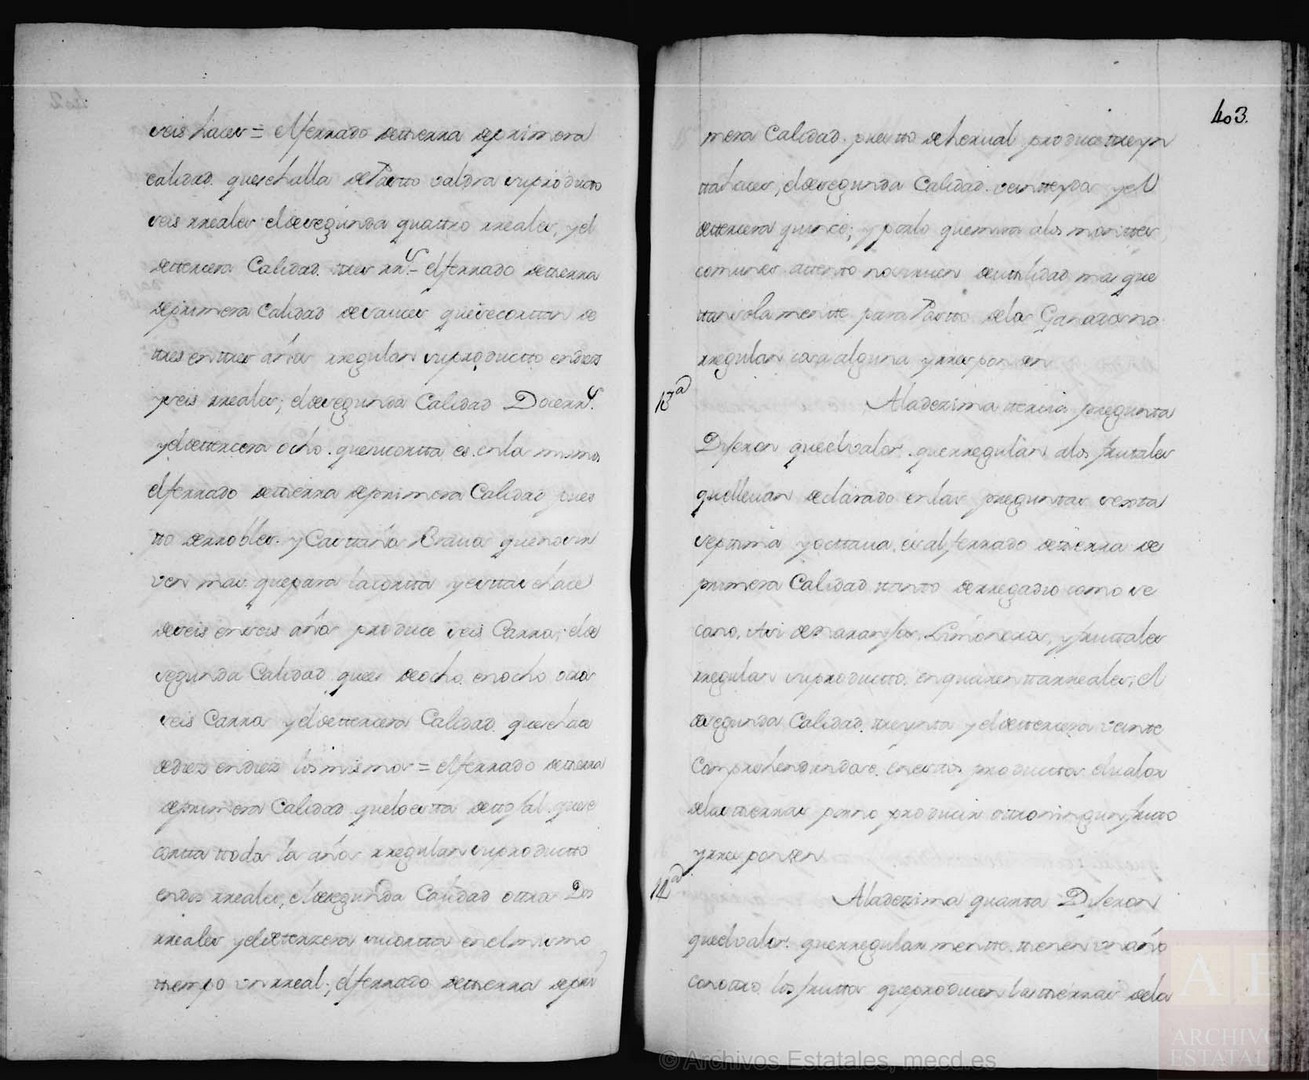 seis hacer = el ferrado detierra deprimera
calidad quesehalla de Pastto valdra suproducto
seis rreales eldesegunda quattro rreales, yel
dettercera Calidad tres rr.s = elferrado detierra
deprimera Calidad desauces quesecorttan de
tres enttres años rregulan suproductto endiez
yseis rreales; eldesegunda Calidad Doce rr.s
yeldettercera ocho quesucortta es enla misma
elferrado dettierra deprimera Calidad pues
tto derrobles y Casttaña Brava quenosir
ven mas quepara lacortta yesttas hace
deseis enseis años produce seis Carros; elde
segunda Calidad quees deocho enocho ottros
seis Carros yeldettercera Calidad quesehaa
dediez endiez losmismos = elferrado detierra
deprimera Calidad queloestta dettojal quese
cortta ttodos los años rregulan suproductto
endos rreales, eldesegunda Calidad ottros Dos
rreales yeldeterzera sucortta enelmismo
ttiempo un rreal; elferrado dettierra depri
403.
mera Calidad puestto deherval produce treyn
ttahaces, eldesegunda Calidad veintteydos yel
dettercera quince; yporlo quemira alos monttes
comunes attento nosirven deutilidad mas que
ttansolamentte para Pastto delos Ganados no
rregulan cosa alguna yrresponden
13ª Aladezima ttercia pregunta
Dijeron quedvalor querregulan alos frutales
quellevan declarado enlas preguntas sesta
septtima yocttava es alferrado dettierra de
primera Calidad ttantto derregadio como se
cano, Asi denaranjos, Limoneros, yfruttales
rregulan suproductto enquarenttarreales, el
desegunda Calidad treynta yeldettercera veinte
Comprehendiendose enesttos producttos elvalor
delas ttierras porno producir ottroningun frutto
yrresponden
14ª Aladezima quarta Dijeron
quedvalor querregularmentte ttienen un año
conottro los fruttos queproducen lasttierras dela